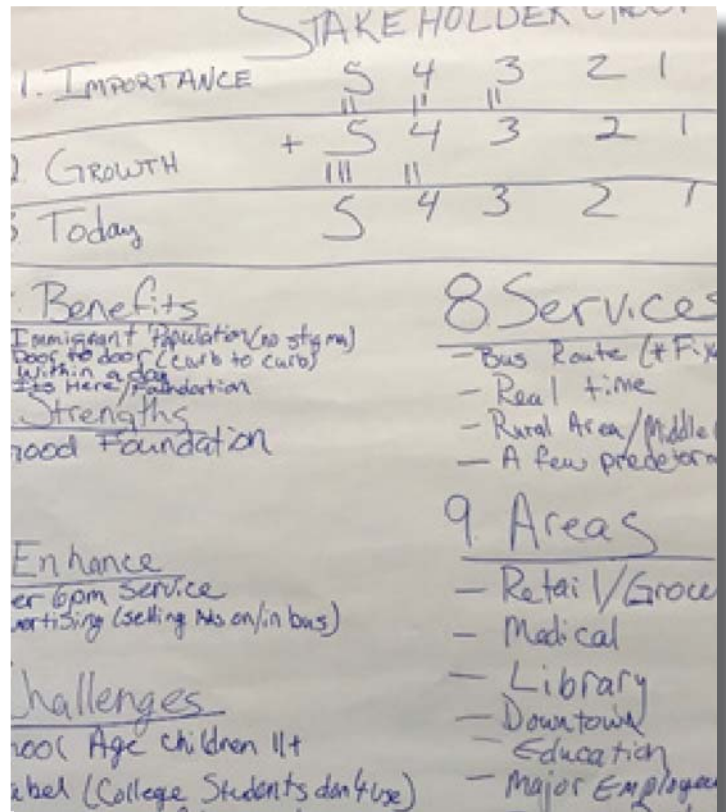 STAKEHOLDER
1. IMPORTANCE 5 4 3 2 1
|| || ||
GROWTH + 5 4 3 2 1
||| ||
Today 5 4 3 2 1
Benefits
Immigrant Population (no stigma)
Door to door (curb to curb)
Within a day
Its Here/Foundation
Strengths
Good Foundation
Enhance
er 6pm Service
vertising (selling Ads on/in bus)
Challenges
hool Age Children 11+
abel (College Students don't use)
8 Services
- Bus Route (+ Fix
- Real time
- Rural Area/Middle
- A few predeterm
9. Areas
- Retail/Groce
- Medical
- Library
- Downtown
- Education
- Major Employe